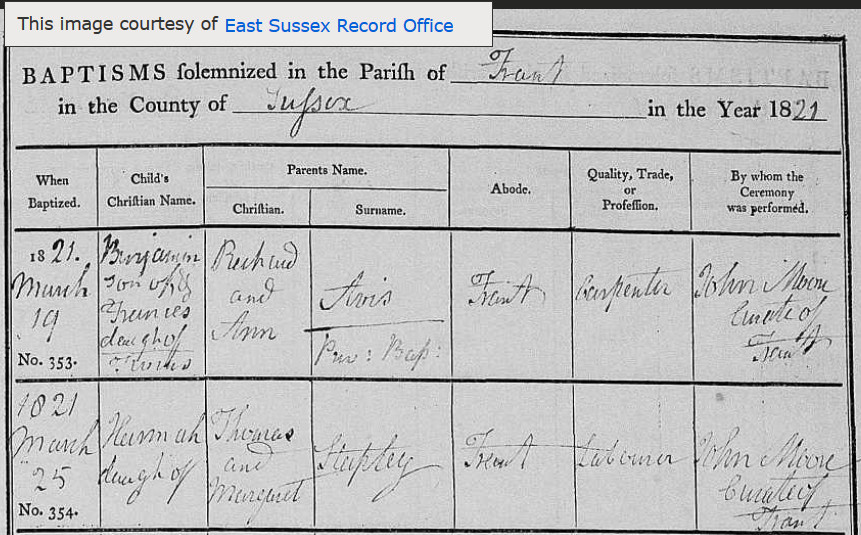 This image courtesy of East Sussex Record Office
BAPTISMS solemnized in the Parish of Frant
in the County of Sussex in the Year 1821
When Baptized.
Child's Christian Name.
Parents Name.
Christian.
Surname.
Abode.
Quality, Trade, or Profession.
By whom the Ceremony was performed.
1821.
March
19
No. 353.
Benjamin
son of &
Frances
daugh of
Richard
and
Ann
Avis
Priv: Bap:
Frant
Carpenter
John Moore
Curate of
Frant
1821
March
25
No. 354.
Hannah
daugh of
Thomas
and
Margaret
Stapley
Frant
Labourer
John Moore
Curate of
Frant